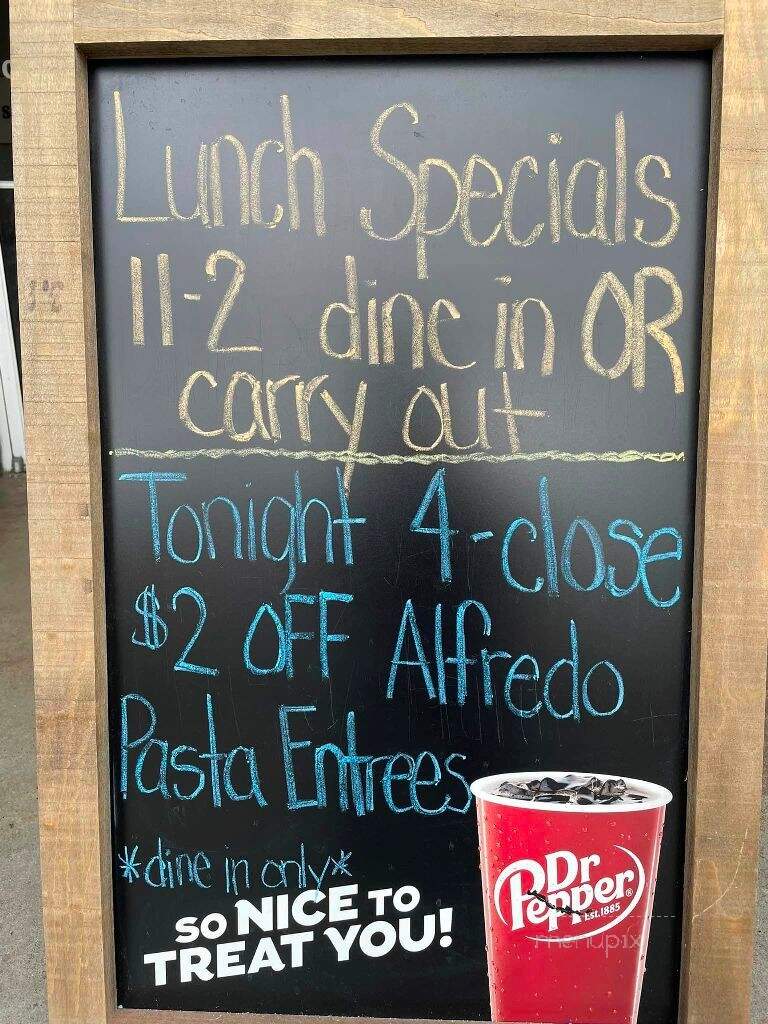 Lunch Specials
11-2 dine in OR
carry out
Tonight 4-close
$2 OFF Alfredo
Pasta Entrees
*dine in only*
SO NICE TO
TREAT YOU!
Dr
Pepper®
EST.1885
menupix